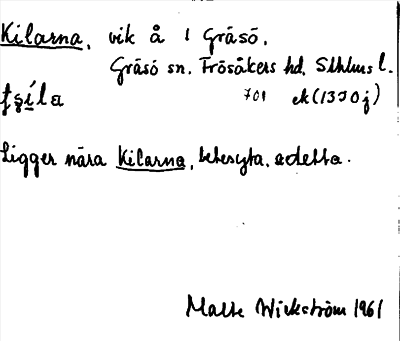 Kilarna, vik å i Gräsö.
Gräsö sn. Frösåkers hd, Sthlms l.
701 ek (1330j)
Ligger nära Kilarna, betesyta, se detta.
Malte Wickström 1961